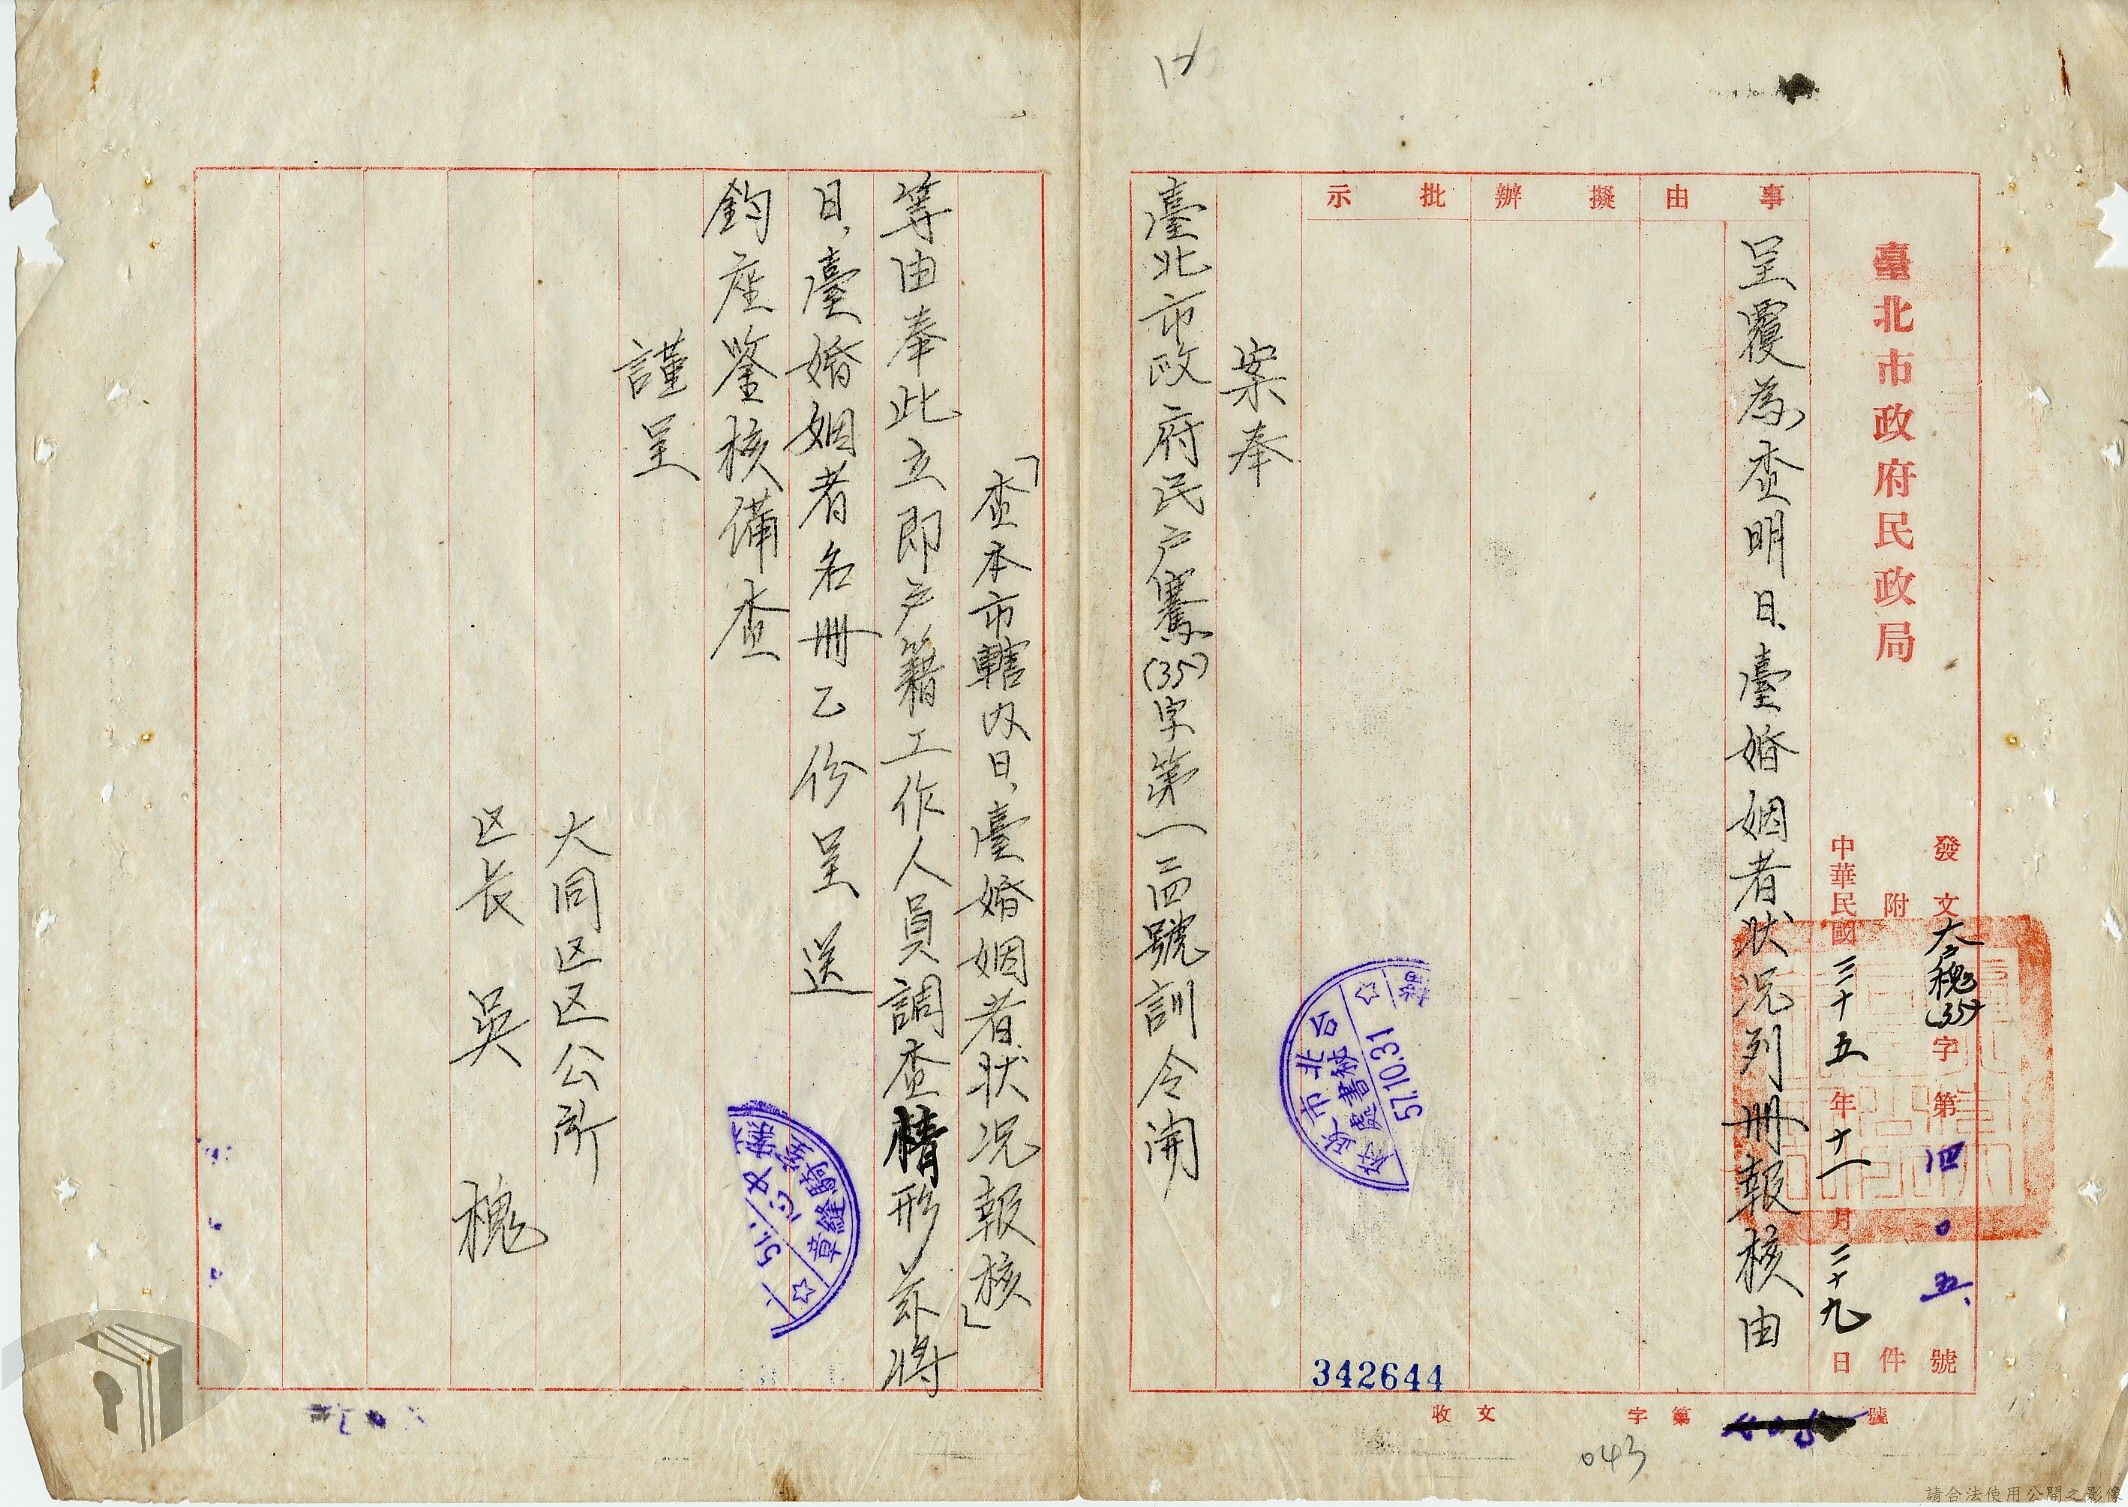 臺北市政府民政局
發文大槐(35)字第四〇五號
附件
中華民國三十五年十一月二十九日
事由
呈覆為查明日、臺婚姻者狀況列冊報核由
擬辦
批示
案奉
臺北市政府民户騫(35)字第一三四號訓令開
「查本市轄内日、臺婚姻者狀况報核」
等由奉此立即户籍工作人員調查情形茲將
日、臺婚姻者名冊乙份呈送
鈞座鑒核備查
謹呈
大同区区公所
区长 吳槐
收文 字第 號
342644
043
台北市政府秘書處
57.10.31
章縫騎室
請合法使用公開之影像